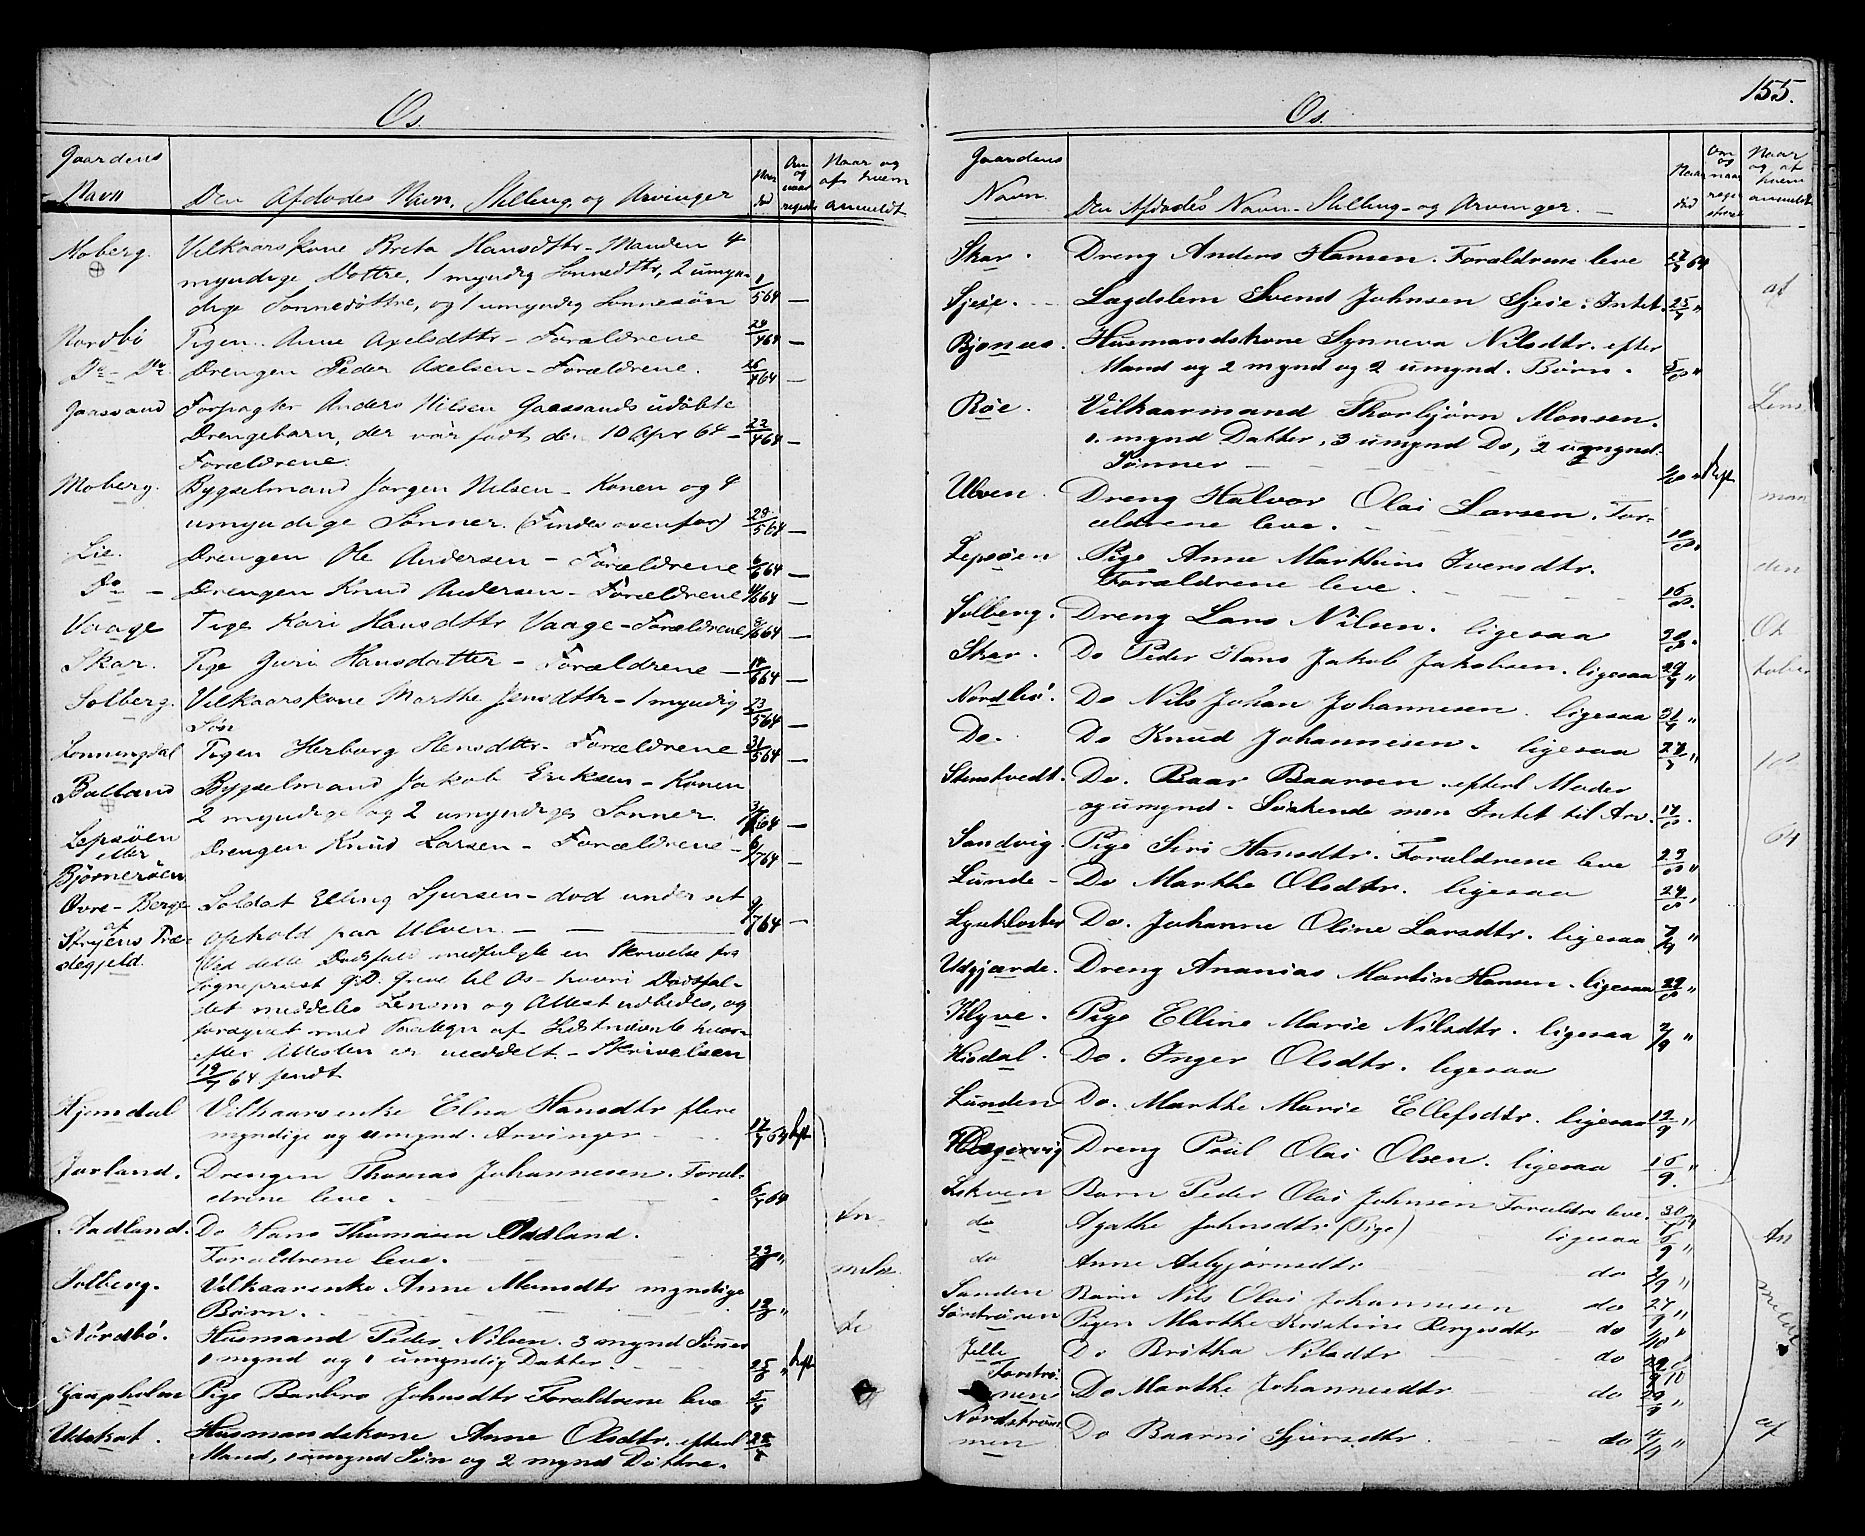 Os.
Gaardens
Navn
Den Afdødes Navn, Stilling, og Arvinger
Naar død
Om og naar regist
Naar og af hvem anmeldt
Moberg. Vilkaarskone Brita Hansdttr - Manden 4
myndige Døttre, 1 myndig Sønnedttr, 2 umyn-
dige Sønnedøttre, og 1 umyndig Sønnesøn 1/5 64 —
Nordbø Pigen Anne Axelsdttr - Forældrene 24/4 64 —
Do - Do Drengen Peder Axelsen - Forældrene. 26/4 64 —
Gaassand Forpagter Anders Nilsen Gaassands udøbte
Drengebarn, der var født den 10 Apr 64 - 22/4 64 —
Forældrene.
Moberg. Bygselmand Jørgen Nilsen - Konen og 4
umyndige Sønner. (Findes ovenfor) 29/5 64 —
Lie. Drengen Ole Andersen - Forældrene 6/6 64 —
Do - Drengen Knud Andersen - Forældrene 11/6 64 —
Vaage Pige Kari Hansdttr Vaage - Forældrene 9/6 64 —
Skar. Pige Guri Hansdatter - Forældrene — 14/6 64 —
Solberg. Vilkaarskone Marthe Jensdttr - 1 myndig 23/5 64 —
Søn
Lønningdal Pigen Herborg Stensdttr - Forældrene 31/5 64 —
Balland Bygselmand Jakob Eriksen - Konen
2 myndige og 2 umyndige Sønner 3/7 64 —
Lepsøen
eller Drengen Knud Larsen - Forældrene - 6/7 64 —
Bjørnerøen
Øvre-Berge Soldat Elling Sjursen - død under sit 9/7 64 —
af
Stryens Præ- ophold paa Ulven —
stegjeld. (Ved dette Dødsfald medfulgte en Skrivelse fra
Sognepræst Greve til Os - hvori Dødsfal-
det meddeles Lensm og Attest udbedes, og
forøvrigt med Paategn af Skifteretten hvor-
efter Attesten er meddelt - Skrivelsen
19/7 64 sendt
Hjemdal Vilkaarsenke Elna Hansdtr flere
myndige og umynd. Arvinger 17/7 64 Left
Jarland. Drengen Thomas Johannesen. Foræl-
drene leve. 6/7 64
Aadland. Do Hans Thomasen Aadland.
Forældrene leve. 23/7 " An-
Solberg. Vilkaarsenke Anne Monsdtr myndige meldt
Børn. 19/8 "
Nordbø. Husmand Peder Nilsen. 3 mynd Sønner
1 mynd og 1 umyndig Datter. 25/8 " Left
Gaapholm Pige Barbro Johnsdtr Forældrene leve 5/8
Udskot. Husmandskone Anne Olsdtr. efterl 22/8
Mand, 1 umynd Søn og 2 mynd Døttre.
155.
Os.
Gaardens
Navn.
Den Afdødes Navn - Stilling - og Arvinger.
Naar død
Om og naar registreret
Naar og af hvem anmeldt
Skar. Dreng Anders Hansen. Forældrene leve 27/7 64
Sjøie. Lagdslem Svend Johnsen Sjøie. Intet. 25/7 " af
Bjønnes. Husmandskone Synneva Nilsdtr. efter
Mand og 2 mynd og 2 umynd. Børn. 5/8 "
Røe. Vilkaarmand Thorbjørn Monsen. Lens
1 mynd Datter, 3 umynd Do, 2 umynd
Sønner Left
Ulven. Dreng Halvor Olai Larsen. For- man
ældrene leve. 10/8.
Lepsøen Pige Anne Marthine Iversdtr. den
Forældrene leve. 16/8.
Solberg. Dreng Lars Nilsen. ligesaa 30/8. Ok
Skar. Do Peder Hans Jakob Jakobsen. ligesaa 29/7 " tober
Nordbø. Do Nils Johan Johannesen. ligesaa 31/7 "
Do. Do Knud Johannesen. ligesaa 27/7 "
Stenstvedt. Do. Baar Baarsen. efterl Moder
og umynd. Søskende men Intet til Arv. 17/8.
Sandvig. Pige Siri Hansdtr. Forældrene leve 23/8 " 64
Lunde - Do Marthe Olsdtr. ligesaa 24/8.
Lysekloster Do. Johanne Oline Larsdtr. ligesaa 7/9 "
Udgjærde. Dreng Ananias Martin Hansen. ligesaa 29/8 "
Klyve. Pige Elline Marie Nilsdtr. ligesaa 2/9 "
Hisdal. Do. Inger Olsdtr. ligesaa
Lunden Do. Marthe Marie Ellefsdtr. ligesaa 12/9 "
Hegervig Dreng Poul Olai Olsen. ligesaa 16/9. "
Lekven Barn Peder Olai Johnsen Forældre leve.
do Agathe Johnsdtr (Pige) ligesaa 6/9 " An
do Anne Asbjørnsdtr do 9/9 "
Sanden Barn Nils Olai Johannesen do 27/9 "
Sørstrønen Pigen Marthe Kristine Børgesdtr do " meldt
Jelle Do Brithe Nilsdtr do
Forstrø-
nene Do Marthe Johannesdtr do 29/9 "
Nordstrøm-
men Do Baarni Sjursdtr. do 4/9 " af